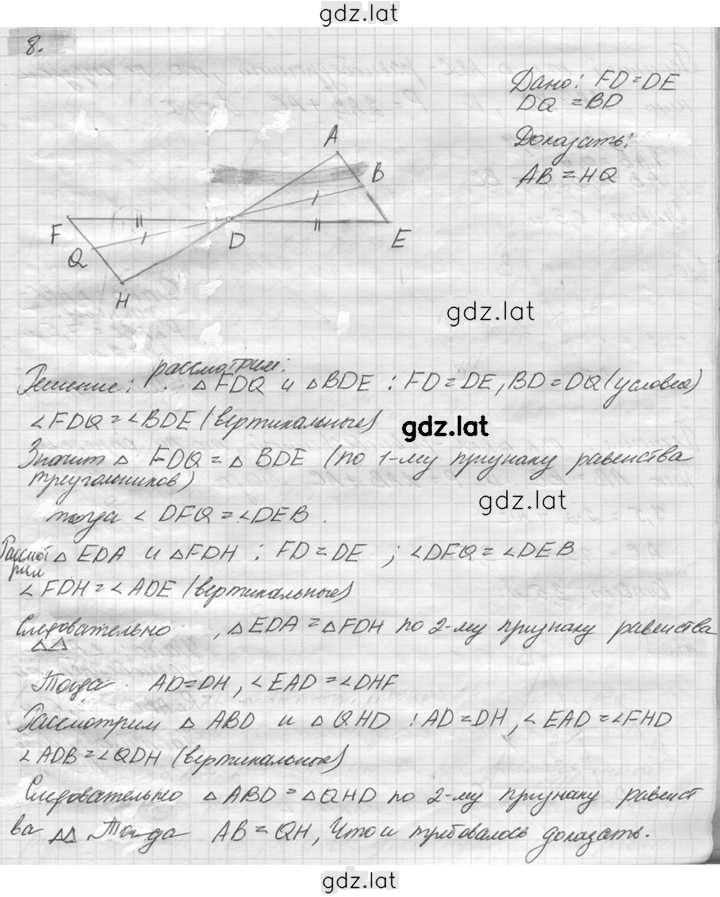 gdz.lat
8.
Дано: FD=DE
DQ=BD
Доказать:
AB=HQ
A
B
F
D
E
Q
H
gdz.lat
рассмотрим:
Решение: △FDQ и △BDE : FD=DE, BD=DQ (условие)
∠FDQ=∠BDE (вертикальные)
gdz.lat
Значит △ FDQ=△ BDE (по 1-му признаку равенства
треугольников)
gdz.lat
тогда ∠DFQ=∠DEB.
Рассмот
рим △EDA и △FDH : FD=DE ; ∠DFQ=∠DEB
∠FDH=∠ADE (вертикальные)
Следовательно , △EDA=△FDH по 2-му признаку равенства
△△
Тогда AD=DH, ∠EAD=∠DHF
Рассмотрим △ABD и △QHD : AD=DH, ∠EAD=∠FHD
∠ADB=∠QDH (вертикальные)
Следовательно △ABD=△QHD по 2-му признаку равенст
ва △△. Тогда AB=QH, Что и требовалось доказать.
gdz.lat